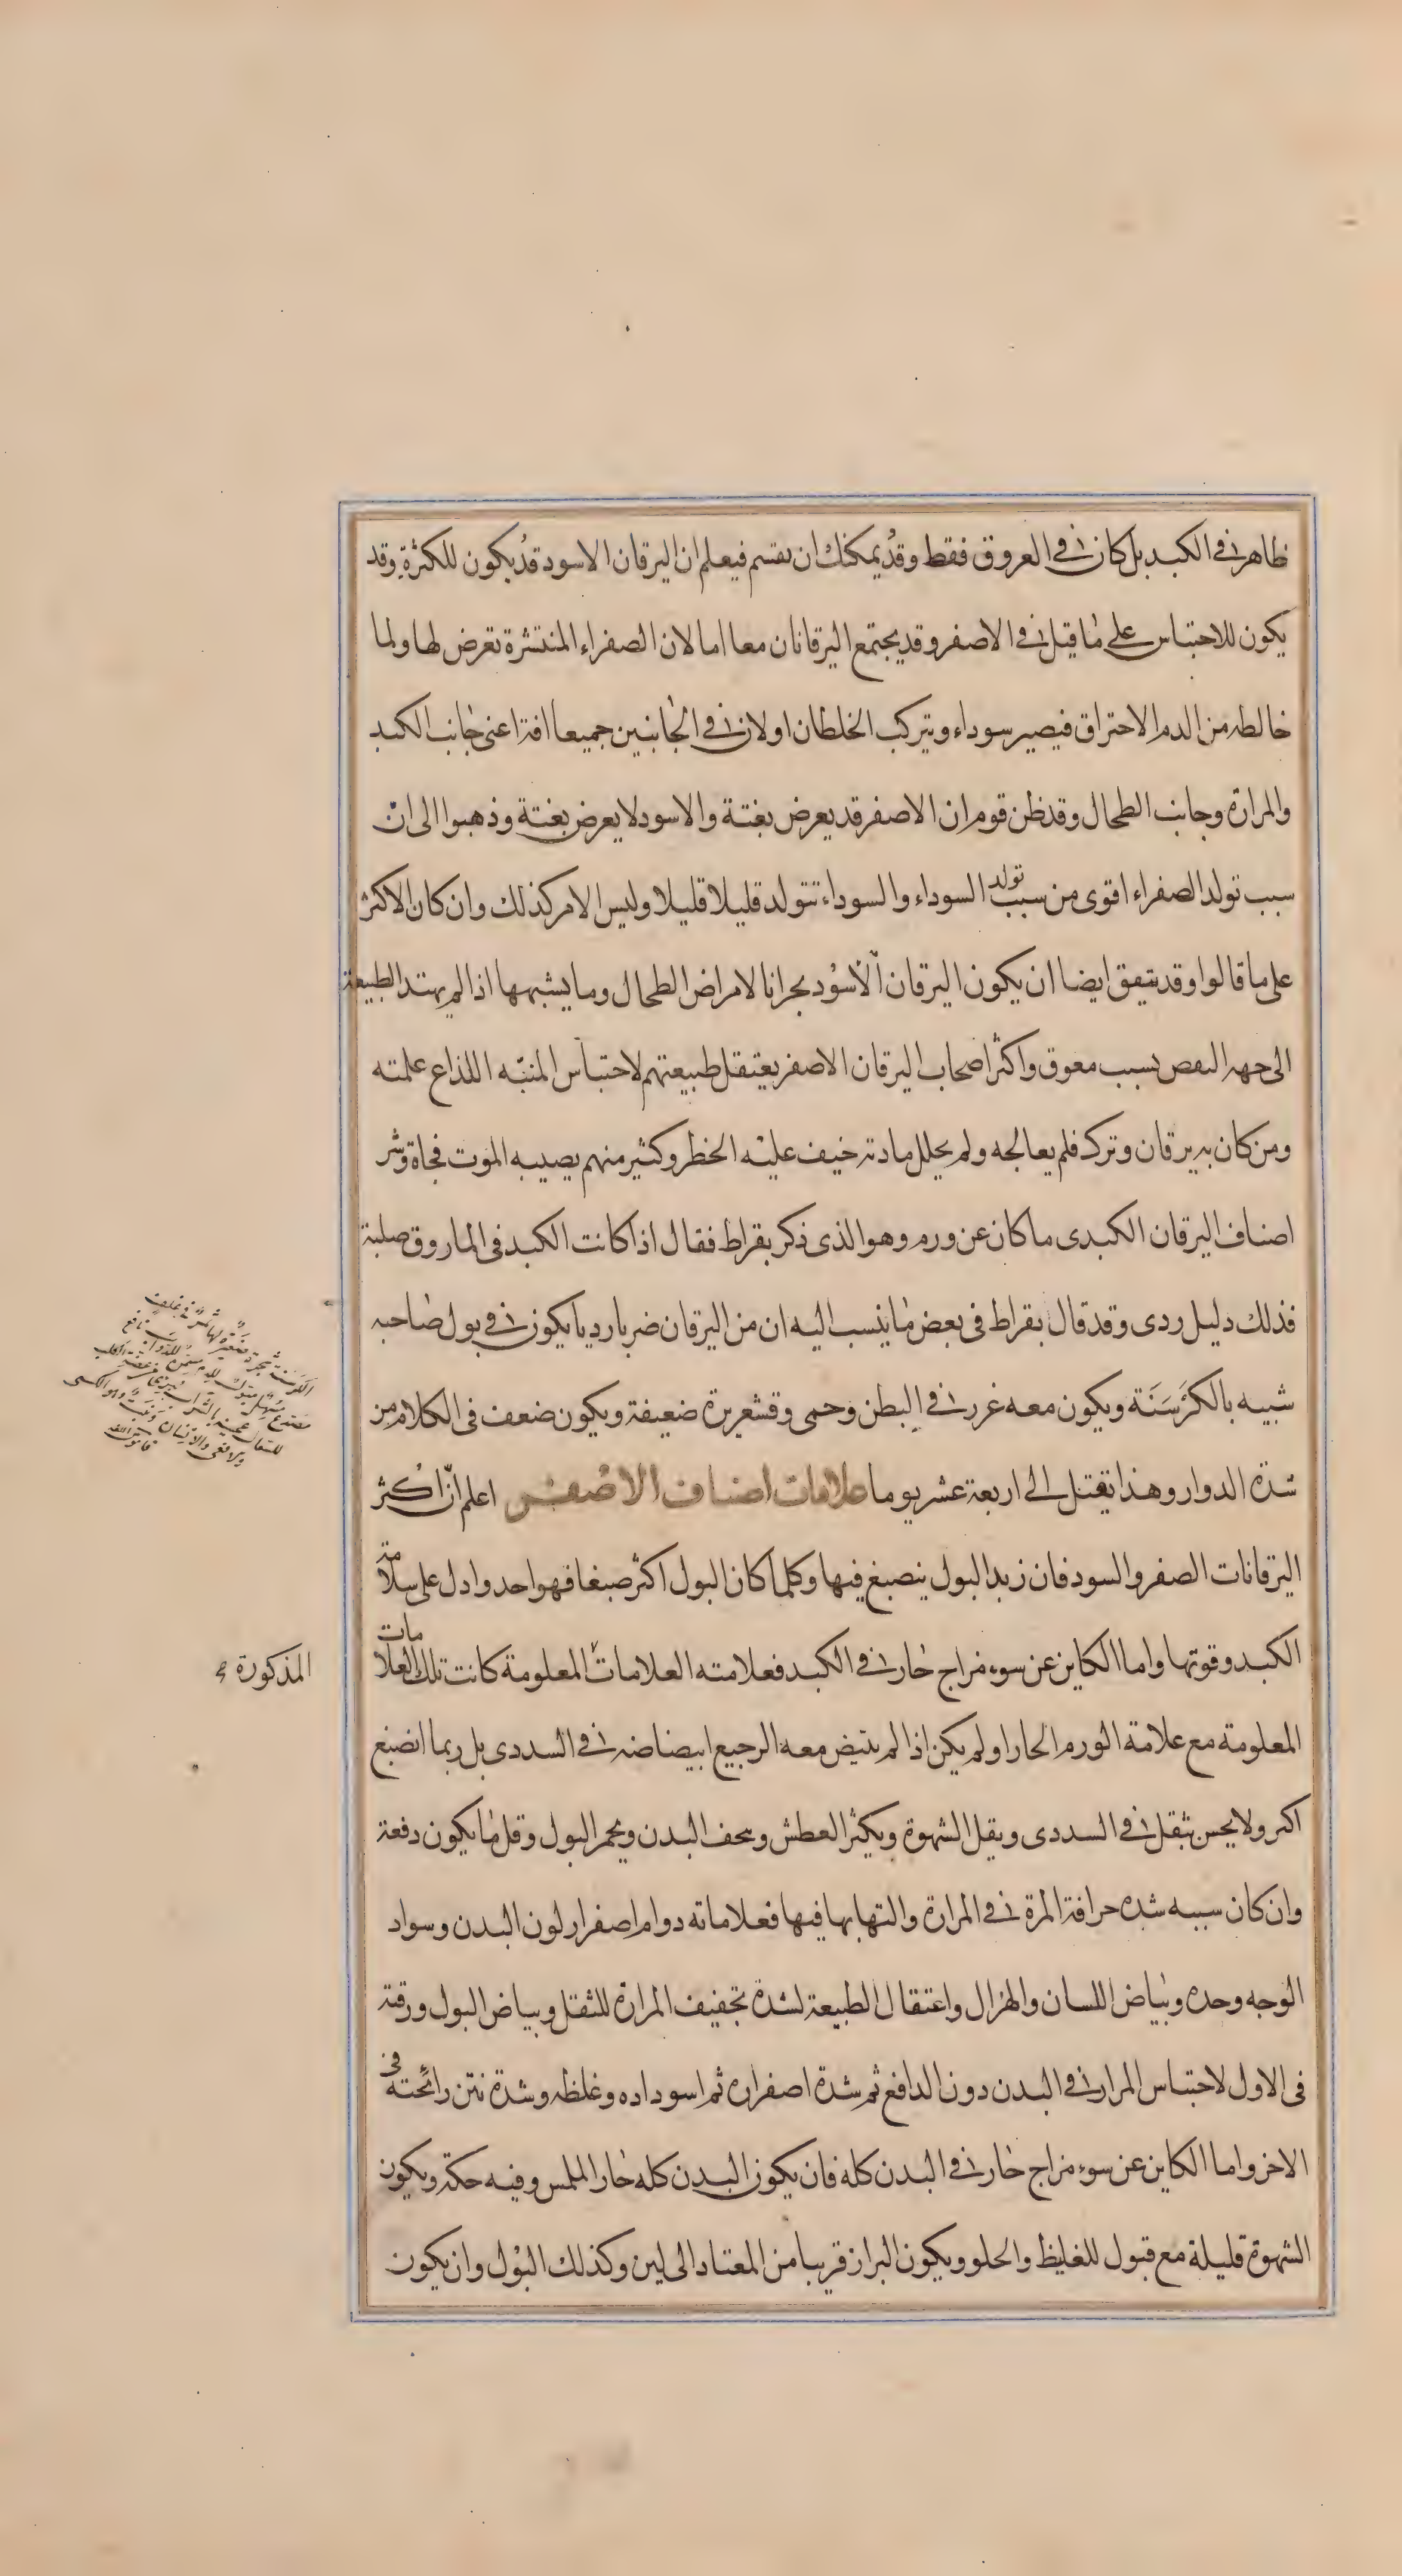 ظاهر فى الكبد بل كان فى العروق فقط وقد يمكنك ان تقسم فيعلم ان اليرقان الاسود قد يكون للكثرة وقد
يكون للاحتباس على ما قيل فى الاصفر وقد يجتمع اليرقانان معا اما لان الصفراء المنتشرة تعرض لها ولما
خالطه من الدم الاحتراق فيصير سوداء ويتركب الخلطان او لان فى الجانبين جميعا افة اعنى جانب الكبد
والمرارة وجانب الطحال وقد ظن قوم ان الاصفر قد يعرض بغتة والاسود لا يعرض بغتة وذهبوا الى ان
سبب تولد الصفراء اقوى من سبب تولد السوداء والسوداء تتولد قليلا قليلا وليس الامر كذلك وان كان الاكثر
على ما قالوا وقد يتفق ايضا ان يكون اليرقان الاسود بحرانا لامراض الطحال وما يشبهها اذا لم يهتد الطبيعة
الى جهة النفض بسبب معوق واكثر اصحاب اليرقان الاصفر يعتقل طبيعتهم لاحتباس المنبّه اللذاع علمته
ومن كان به يرقان وترك فلم يعالجه ولم يحلل مادته خيف عليه الخطر وكثير منهم يصيبه الموت فجاة وشر
اصناف اليرقان الكبدى ما كان عن ورم وهو الذى ذكر بقراط فقال اذا كانت الكبد فى الماروق صلبة
فذلك دليل ردى وقد قال بقراط فى بعض ما ينسب اليه ان من اليرقان ضربا رديا يكون فى بول صاحبه
شبيه بالكَرسَنَة ويكون معه غرر فى البطن وحمى وقشعريرة ضعيفة ويكون ضعف فى الكلام من
شدة الدوار وهذا يقتل الى اربعة عشر يوما علامات اصناف الاصفر اعلم انّ اكثر
اليرقانات الصفر والسود فان زبد البول ينصبغ فيها وكلما كان البول اكثر صبغا فهو احد وادل على سلامة
الكبد وقوتها واما الكاين عن سوء مزاج حار فى الكبد فعلامته العلامات المعلومة كانت تلك العلامات
المذكورة
المعلومة مع علامة الورم الحار او لم يكن اذا لم يبيض معه الرجيع ابيضاضه فى السددى بل ربما انصبغ
اكثر ولا يحس بثقل فى السددى ويقل الشهوة ويكثر العطش وينحف البدن ويحمر البول وقل ما يكون دفعة
وان كان سببه شده حرافة المرة فى المرارة والتهابها فيها فعلاماته دوام اصفرار لون البدن وسواد
الوجه وحده وبياض اللسان والهزال واعتقال الطبيعة لشدة تجفيف المرارة للثقل وبياض البول ورقته
فى الاول لاحتباس المرار فى البدن دون الدافع ثم شدة اصفراره ثم اسوداده وغلظه وشدة نتن رائحته فى
الاخر واما الكاين عن سوء مزاج حار فى البدن كله فان يكون البدن كله حار الملمس وفيه حكة ويكون
الشهوة قليلة مع قبول للغليظ والحلو ويكون البراز قريبا من المعتاد الى لين وكذلك البول وان يكون